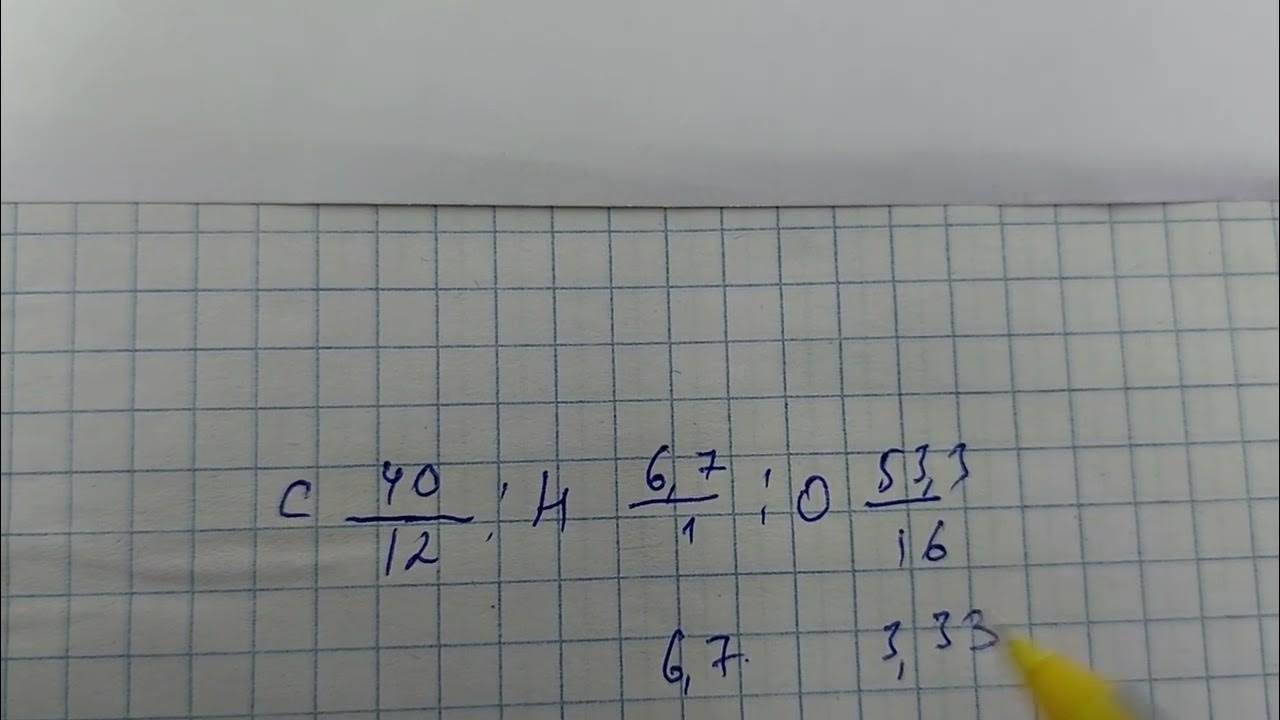 C 40/12 : H 6,7/1 : O 53,3/16
6,7 3,33